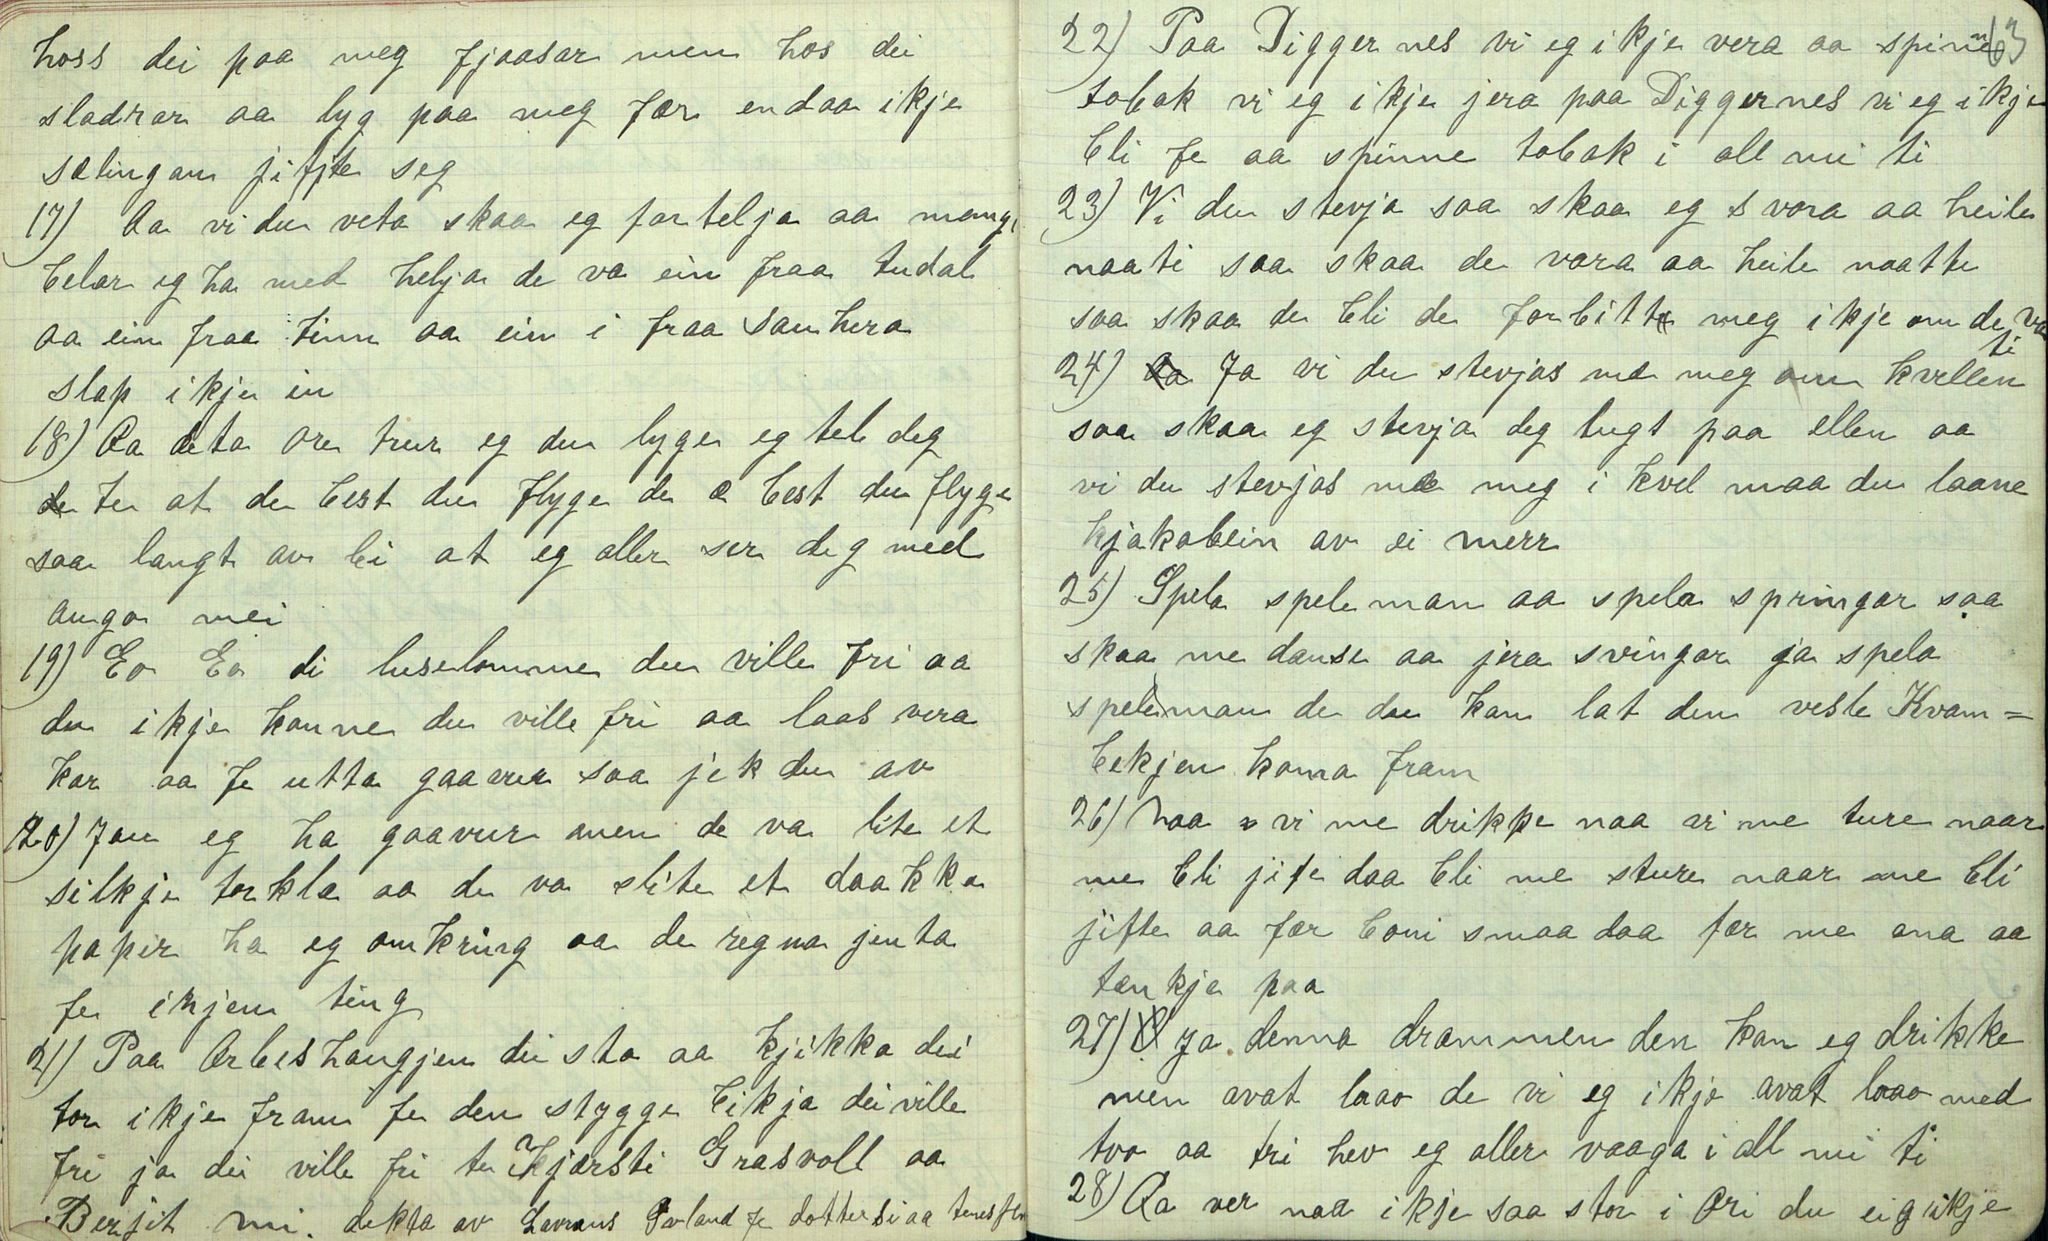 hoss dei paa meg fjaasar men hos dei
sladrar aa lyg paa meg fær endaa ikje
sælingan jifte seg
17) Aa vi du veta skaa eg fortelja aa mang
belar eg ha med helja de va ein fraa tudal
aa ein fraa tinn aa ein i fraa sauhera
slap ikje in
18) Aa deta ore trur eg du lyge eg tel deg
te at de best du flyge de æ best du flyge
saa langt av bi at eg aller ser deg med
augo mei
19) Eo Eo di luselomme du ville fri aa
du ikje kunne du ville fri aa laas vera
kar aa fe utta gaavur saa jek du av
20) Jau eg ha gaavur men de va lite et
silkje torkla aa de va slite et daakka
papir ha eg omkring aa de regna jenta
fe ikjen ting
21) Paa Orbeshaugjen dei sto aa kjikka dei
tor ikje fram fe den stygge bikja dei ville
fri ja dei ville fri te Kjærsti Grasvoll aa
Berjit mi. dekta av Lavrans Gvland fe dotter si aa
22) Paa Diggernes vi eg ikje vera aa spinne
63
tobak vi eg ikje jera paa Diggernes vi eg ikje
bli fe aa spinne tobak i all mi ti
23) Vi du stevja saa skaa eg svara aa heile
naati saa skaa de vara aa heile naatte
saa skaa de bli de forbitte meg ikje om de va
ti
24) Ja vi du stevjas mæ meg om kvellen
saa skaa eg stevja deg tugt paa ellen aa
vi du stevjas mæ meg i kvel maa du laane
kjakabein av ei merr
25) Spela speleman aa spela springar saa
skaa me danse aa jera svingar ja spela
speleman de du kan lat den vesle Kvam=
bekjen koma fram
26) Naa vi me drikke naa vi me ture naar
me bli jifte daa bli me sture naar me bli
jifte aa fær boni smaa daa fær me ana aa
tænkje paa
27) Ja denna drammen den kan eg drikke
men avat laao de vi eg ikje avat laao med
tvo aa tri hev eg aller vaaga i all mi ti
28) Aa ver naa ikje saa stor i Ori du eig ikje